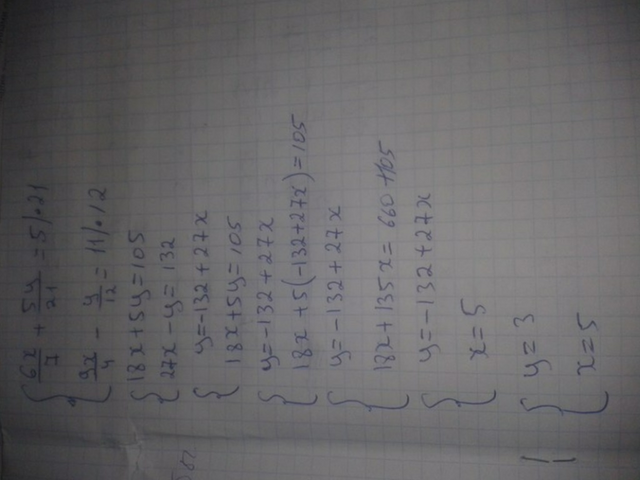 6x/7 + 5y/21 = 5 |·21
9x/4 - y/12 = 11 |·12
18x+5y=105
27x-y=132
y=-132+27x
18x+5y=105
y=-132+27x
18x+5(-132+27x)=105
y=-132+27x
18x+135x=660+105
y=-132+27x
x=5
y=3
x=5